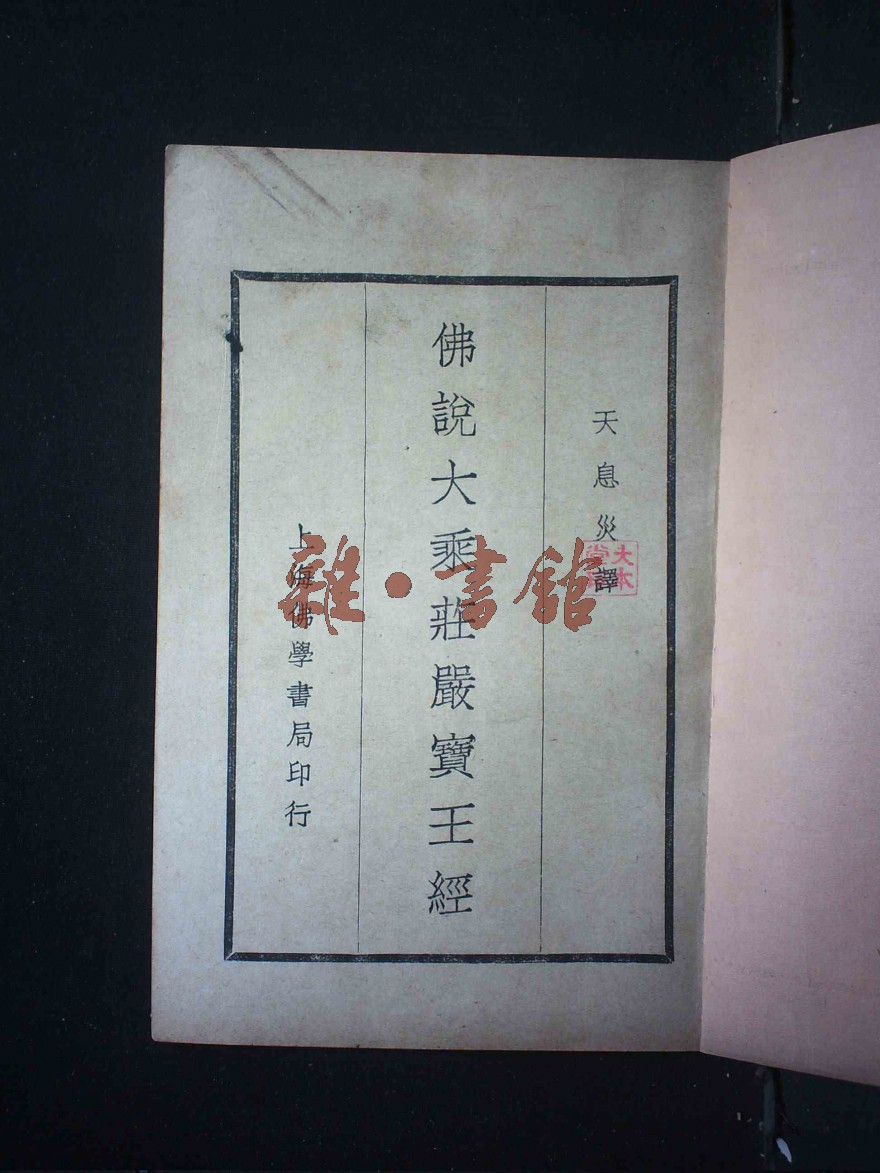 天息災譯
佛說大乘莊嚴寶王經
上海佛學書局印行
雜·書館
大本
堂